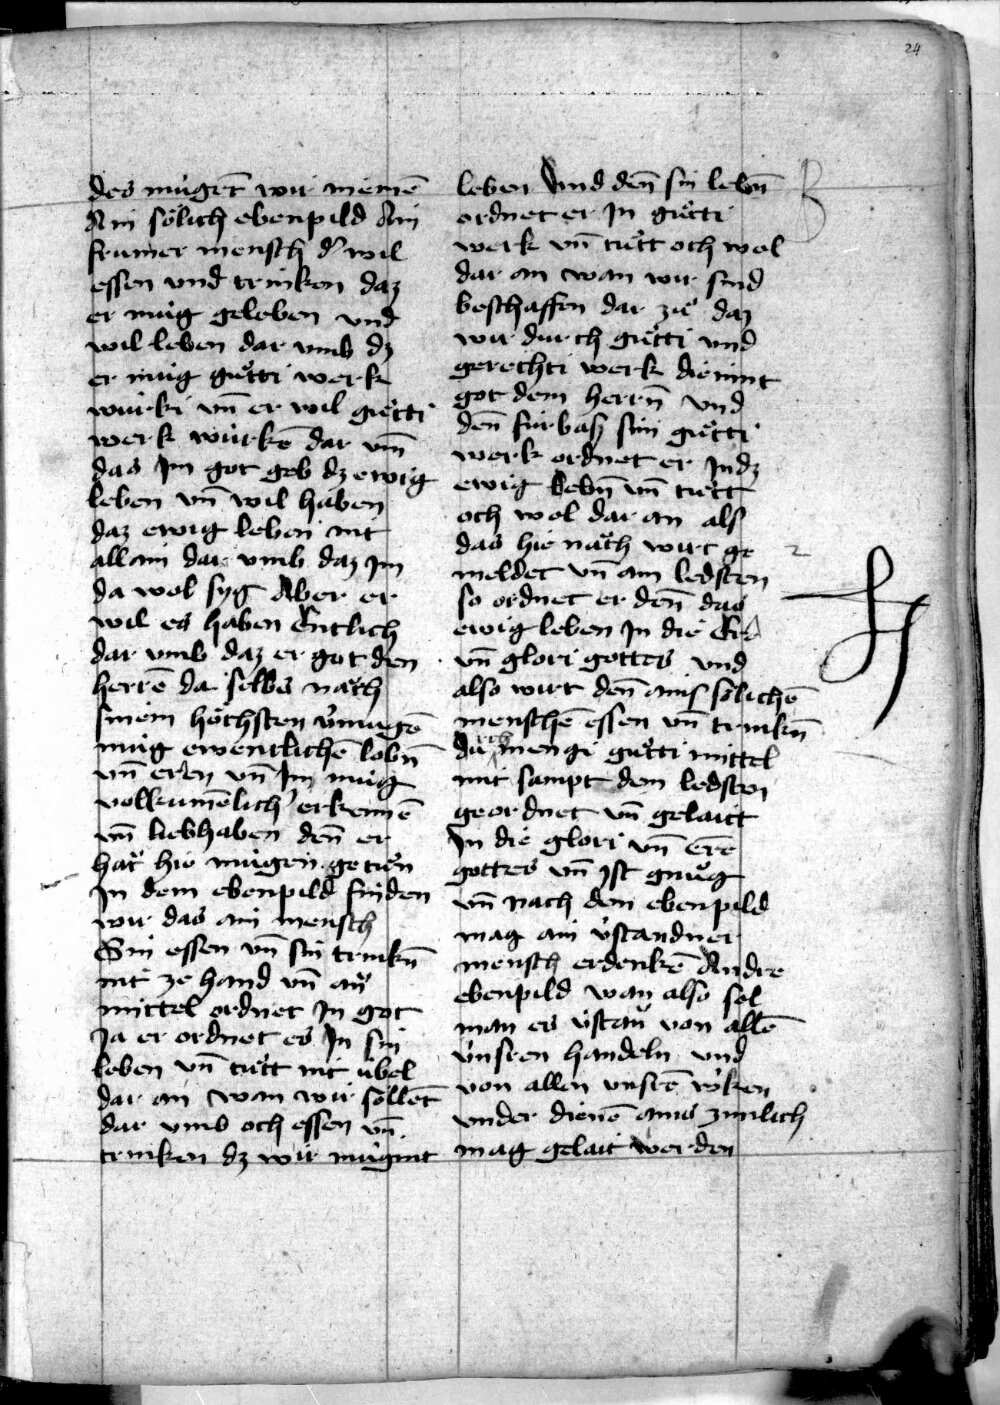 24
des mügēt wir niemē
Ain sölich ebenpild Ain
frumer mensch d' wil
essen und trinken daz
er müg geleben und
wil leben dar umb dz
er müg guͦtti werk
würki vn̄ er wil guͦtti
werk würkē dar vm̄
das Im got geb dz ewig
leben vn̄ wil haben
daz ewig leben nit
allain dar umb daz Jm
da wol syg Aber er
wil es haben Entlich
dar umb daz er got den
herrē da selbs nach
sinem höchsten v̓mügē
müg ewentlichē lobn̄
vn̄ eren vn̄ Im müg
volkumēlich' erkennē
vn̄ liebhaben den̄ er
hat hie mügen getuͦn
In dem ebenpild finden
wir das ain mensch
Sin essen vn̄ sin trinkn̄
nit ze hand vn̄ an̓
mittel ordnet In got
Ja er ordnet es In sin
leben vn̄ tuͦtt nit übel
dar an wan wir söllēt
dar umb och essen vn̄
trinken dz wir mügint
leben Und den̄ sin lebn̄
ordnet er In guͦtti
werk vn̄ tuͦtt och wol
dar an wan wir sind
beschaffen dar zuͦ daz
wir durch guͦtti und
gerechti werk dienint
got dem herrn̄ und
den̄ fürbaß sin guͦtti
werk ordnet er In dz
ewig lebn̄ vn̄ tuͦtt
och wol dar an als
das hie nach wirt ge
meldet vn̄ am ledsten
so ordnet er den̄ das
ewig leben In die Er
vn̄ glori gottes und
also wirt den̄ ains sölichē
menschē essen vn̄ trinkn̄
durch mengi guͦtti mittel
mit sampt dem ledsten
geordnet vn̄ gelaitt
In die glori vn̄ ērē
gottes vn̄ Ist gnuͦg
vn̄ nach dem ebenpild
mag ain v̓standner
mensch erdenkē Andre
ebenpild wan also sol
man es v̓stan̓ von allē
v̓nsren handeln und
von allen unsrē w̓ken
under dienē ains zimlich
mag gelait werden